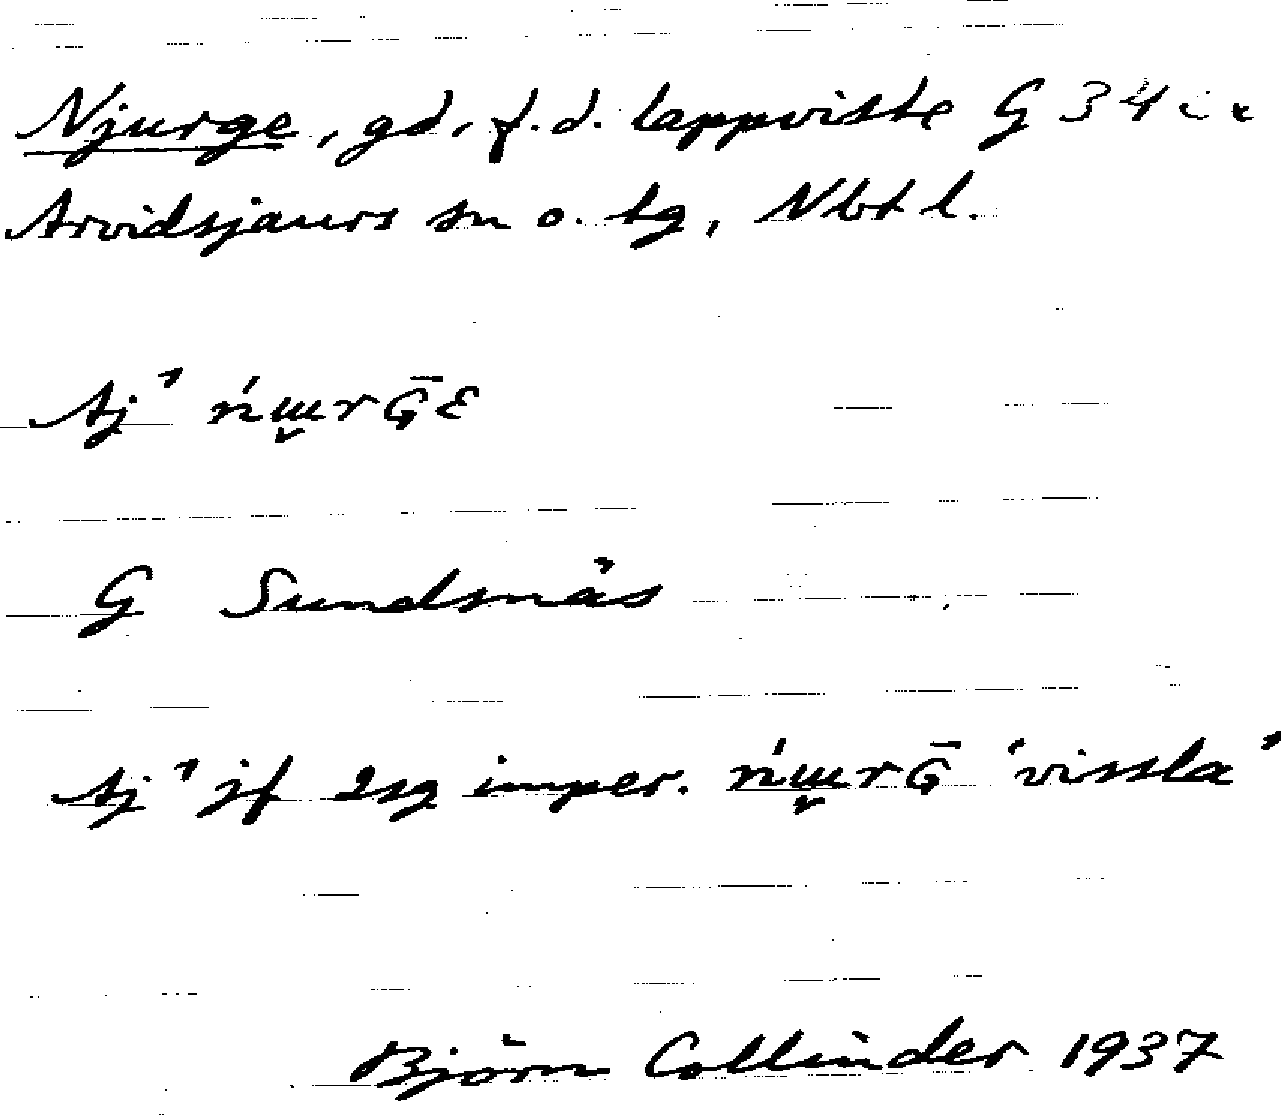 Njurge, gd, f.d. lappviste G 34 i e
Arvidsjaurs sn o. tg, Nbt l.
Aj' ńɯ̬rG̅ɛ
G Sundsnäs
Aj' jf 2sg imper. ńɯ̬rG̅ 'vissla'
Björn Collinder 1937